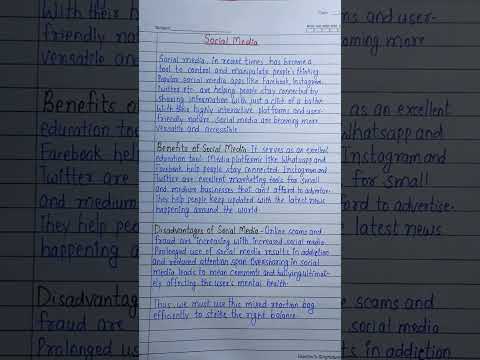 Social Media
Social media, in recent times has become a
tool to control and manipulate people's thinking.
Popular social media apps like Facebook, Instagram,
Twitter etc. are helping people stay connected by
sharing information with just a click of a button.
With their highly interactive platforms and user-
friendly nature, social media are becoming more
versatile and accessible.
Benefits of Social Media- It serves as an excellent
education tool. Media platforms like Whatsapp and
Facebook help people stay connected. Instagram and
Twitter are excellent marketing tools for small
and medium businesses that can't afford to advertise.
They help people keep updated with the latest news
happening around the world.
Disadvantages of Social Media- Online scams and
fraud are increasing with increased social media.
Prolonged use of social media results in addiction
and reduced attention span. Oversharing in social
media leads to mean comments and bullying ultimat-
ely affecting the user's mental health.
Thus, we must use this mixed reaction bag
efficiently to strike the right balance.
With their h
friendly nat
versatile an
Benefits of
education tool
Facebook help
Twitter are
and medium
They help peo
happening a
Disadvantag
fraud are
Prolonged us
ms and user-
coming more
as an excellent
Whatsapp and
Instagram and
for small
ord to advertise.
e latest news
scams and
social media
ts in addiction